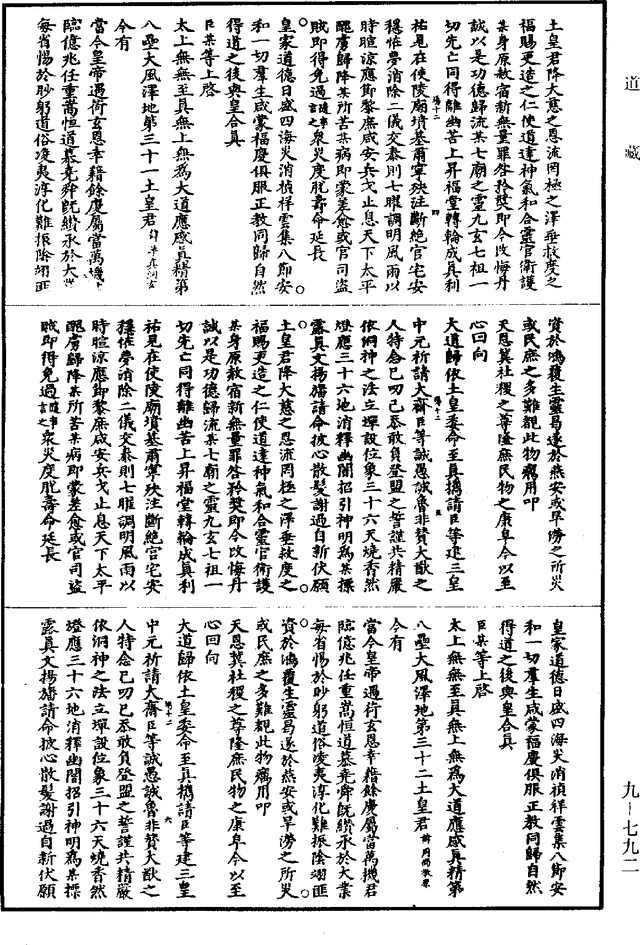 道藏
土皇君降大慈之恩流罔極之澤垂救度之
福賜更造之仁使道達神氣和合靈官衛護
某身原赦宿新無量罪咎矜獎即今改悔丹
誠以是功德歸流某七廟之靈九玄七祖一
切先亡同得離幽苦上昇福堂轉輪成真利
祐見在使陵廟墳墓爾寧殃注斷絕宮宅安
穩怪夢消除二儀交泰則七曜調明風雨以
時暄涼應節黎庶咸安兵戈止息天下太平
醜虜歸降某所苦某病即蒙差愈或官司盜
賊即得免過隨事言之衆災度脫壽命延長
皇家道德日盛四海災消禎祥雲集八節安
和一切羣生咸蒙福慶俱服正教同歸自然
得道之後與皇合真
臣某等上啓
太上無無至真無上無為大道應感真精第
八壘大風澤地第三十一土皇君
今有
當今皇帝遇荷玄恩幸藉餘慶屬當萬機
臨億兆任重嵩恒道慕堯舜既纘承於大
每省惕於眇躬道俗凌夷淳化難振陰翊匪
資於鴻覆生靈曷遂於燕安或旱澇之所災
或民庶之多難覩此物癘用叩
天恩冀社稷之尊隆庶民物之康阜今以至
心回向
大道歸依土皇委命至真攜請臣等建三皇
中元祈請大齋臣等誠愚誠魯非贊大猷之
人特念已叨已忝敢負登盟之誓謹共精嚴
依洞神之法立壇設位象三十六天燒香然
燈應三十六地消釋幽關招引神明為某標
露真文揚旛請命披心散髮謝過自新伏願
土皇君降大慈之恩流罔極之澤垂救度之
福賜更造之仁使道達神氣和合靈官衛護
某身原赦宿新無量罪咎矜獎即今改悔丹
誠以是功德歸流某七廟之靈九玄七祖一
切先亡同得離幽苦上昇福堂轉輪成真利
祐見在使陵廟墳墓爾寧殃注斷絕宮宅安
穩怪夢消除二儀交泰則七曜調明風雨以
時暄涼應節黎庶咸安兵戈止息天下太平
醜虜歸降某所苦某病即蒙差愈或官司盜
賊即得免過隨事言之衆災度脫壽命延長
皇家道德日盛四海災消禎祥雲集八節安
和一切羣生咸蒙福慶俱服正教同歸自然
得道之後與皇合真
臣某等上啓
太上無無至真無上無為大道應感真精第
八壘大風澤地第三十二土皇君
今有
當今皇帝遇荷玄恩幸藉餘慶屬當萬機君
臨億兆任重嵩恒道慕堯舜既纘承於大業
每省惕於眇躬道俗凌夷淳化難振陰翊匪
資於鴻覆生靈曷遂於燕安或旱澇之所災
或民庶之多難覩此物癘用叩
天恩冀社稷之尊隆庶民物之康阜今以至
心回向
大道歸依土皇委命至真攜請臣等建三皇
中元祈請大齋臣等誠愚誠魯非贊大猷之
人特念已叨已忝敢負登盟之誓謹共精嚴
依洞神之法立壇設位象三十六天燒香然
燈應三十六地消釋幽關招引神明為某標
露真文揚旛請命披心散髮謝過自新伏願
九-七九二